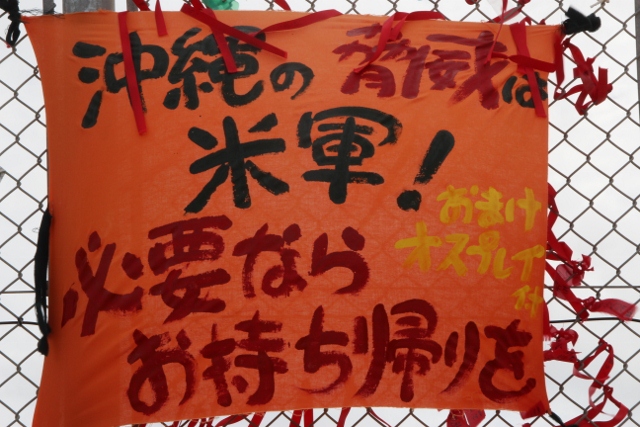 沖縄の脅威は
米軍!
必要なら
お持ち帰りを
おまけ
オスプレプ
付